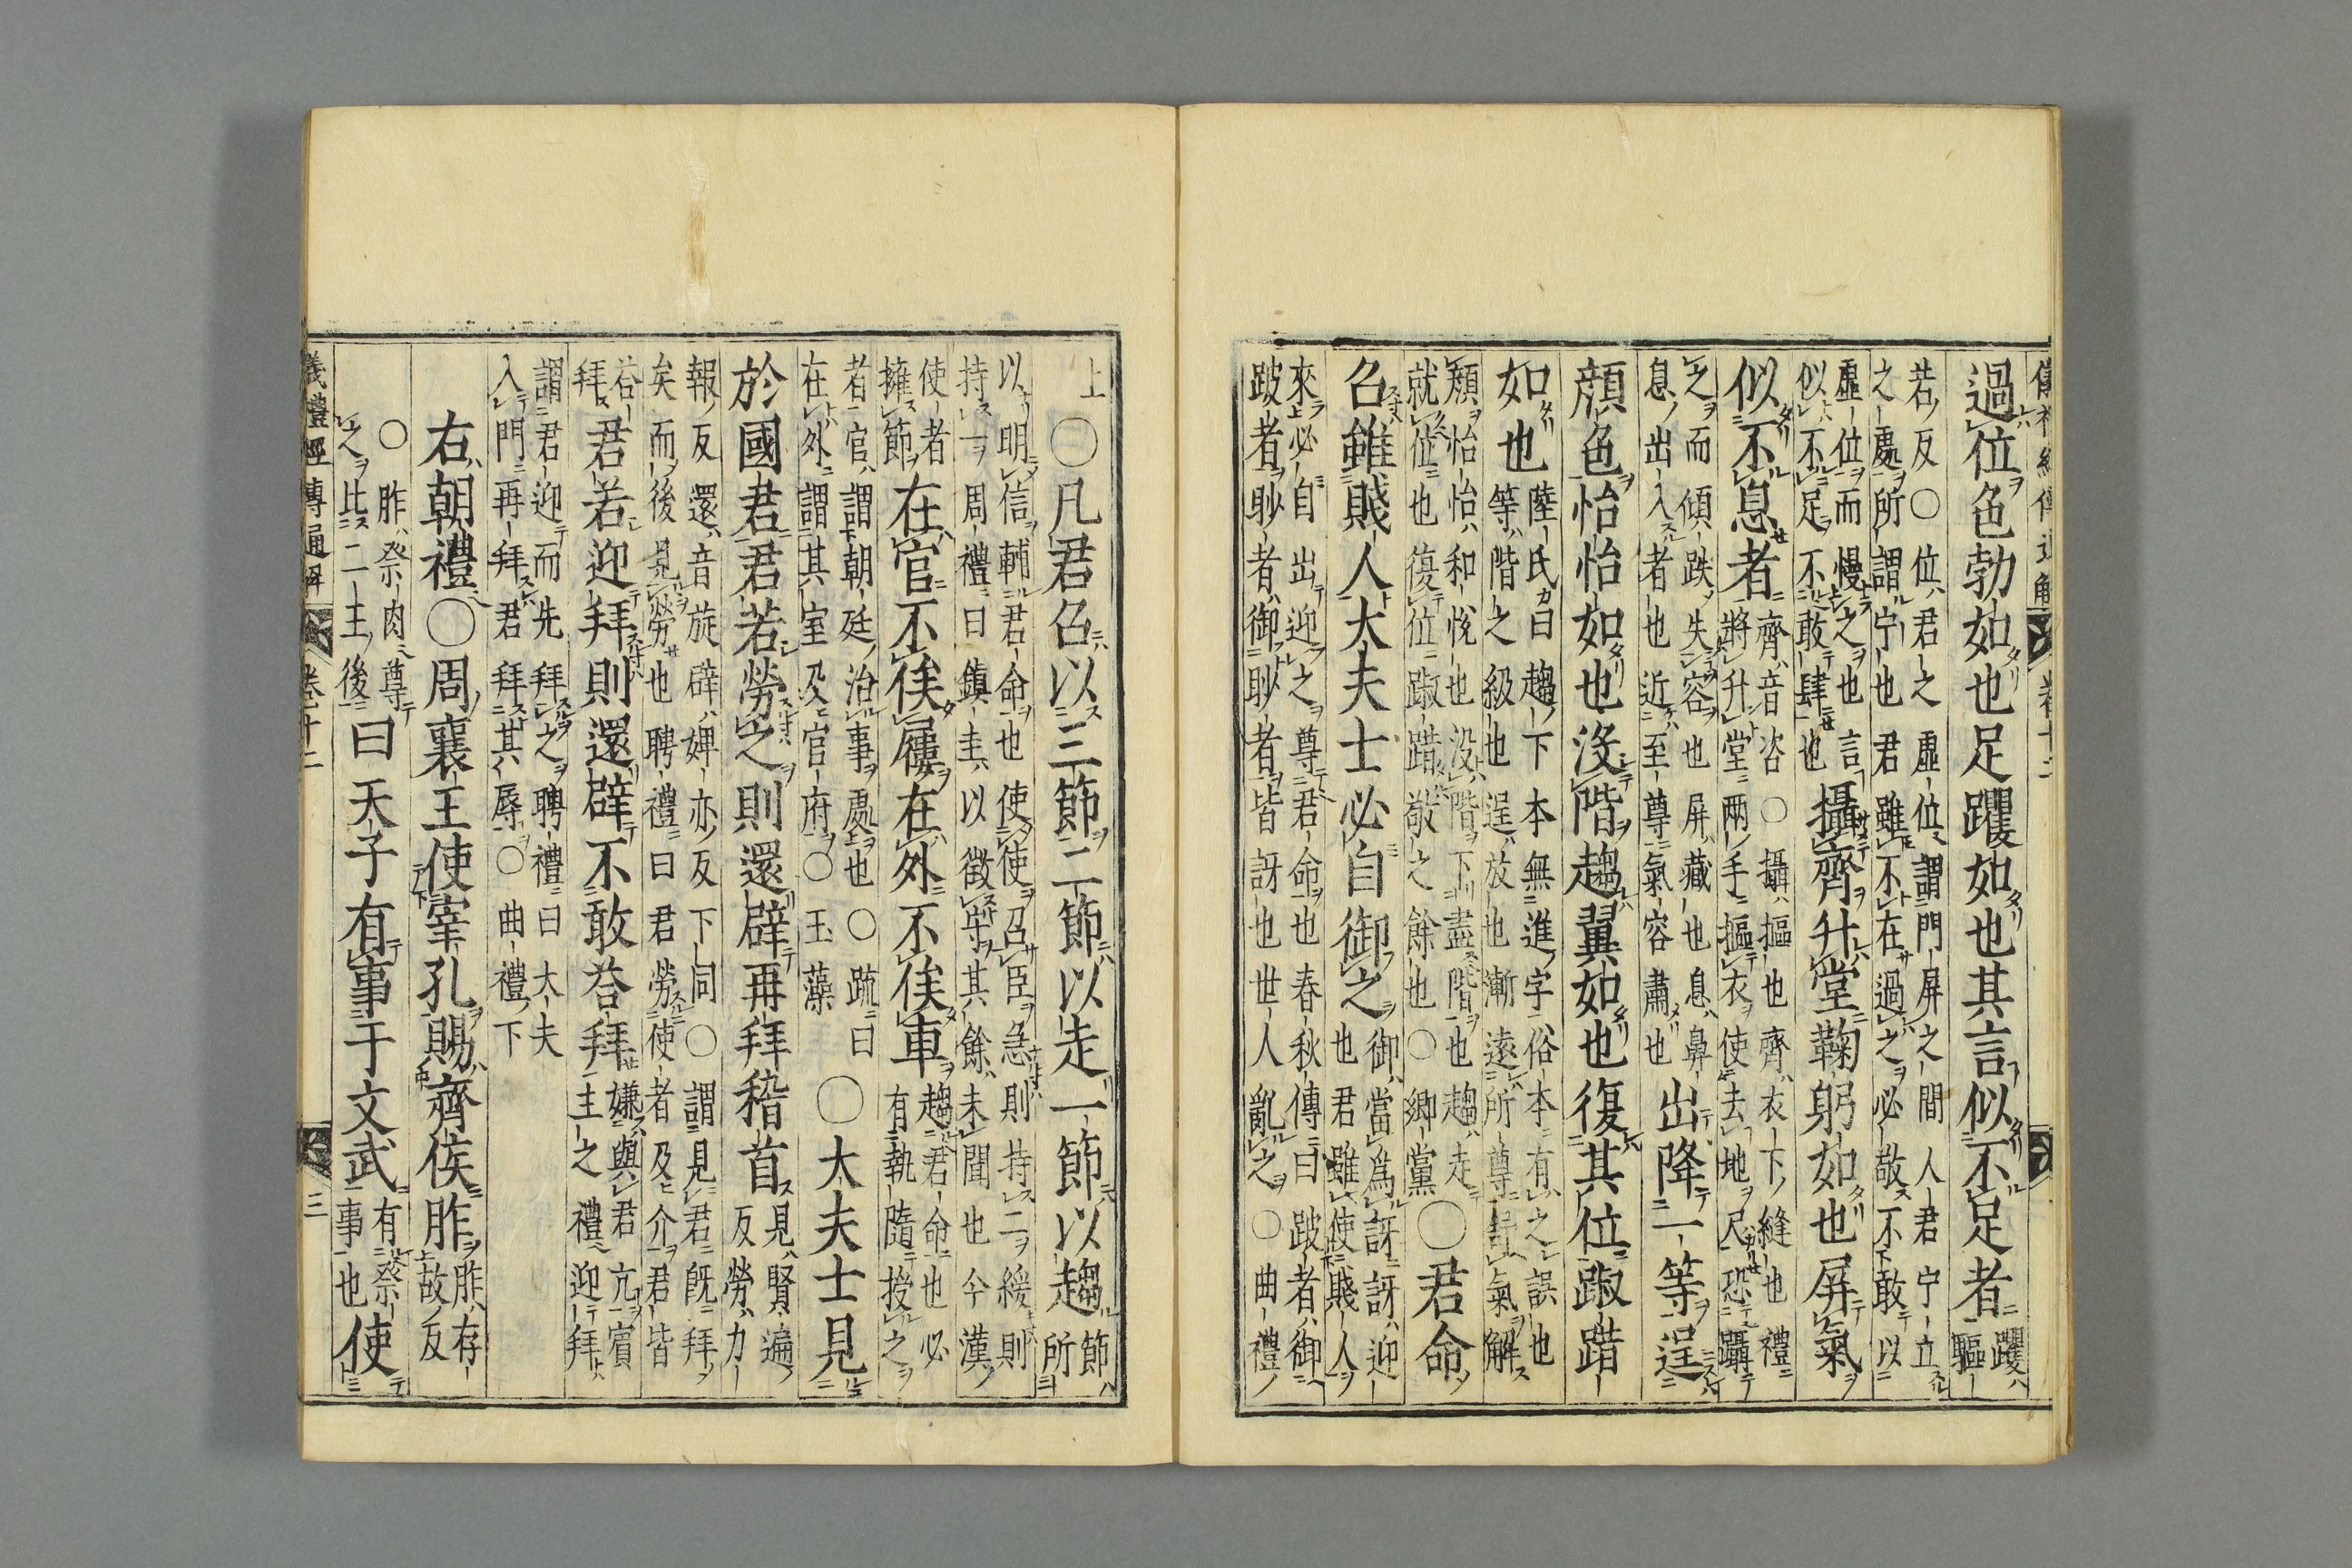 過位色勃如也足躩如也其言似不足者躩驅
若反○位君之虛位謂門屏之間人君宁立
之處所謂宁也君雖不在過之必敬不敢以
虛位而慢之也言
似不足不敢肆也攝齊升堂鞠躬如也屏氣
似不息者齊音咨○攝摳也齊衣下縫也禮
將升堂兩手摳衣使去地尺恐躡
之而傾跌失容也屏藏也息鼻
息出入者也近至尊氣容肅也出降一等逞
顔色怡怡如也沒階趨翼如也復其位踧踖
如也陸氏曰趨下本無進字俗本有之誤也
等階之級也逞放也漸遠所尊舒氣解
顏怡怡和悅也没階下盡階也趨走
就位也復位踧踖敬之餘也○卿黨○君命
召雖賤人大夫士必自御之御當爲訝訝迎
也君雖使賤人
來必自出迎之尊君命也春秋傳曰跛者御
跛者眇者御眇者皆訝也世人亂之○曲禮
儀禮經傳通解 卷十二
上○凡君召以三節二節以走一節以趨節所
以明信輔君命也使使召臣急則持二緩則
持一周禮曰鎮圭以徵守其餘未聞也今漢
使者
擁節在官不俟屨在外不俟車趨君命也必
有執隨授之
者官謂朝廷治事處也○疏曰
在外謂其室及官府○玉藻○大夫士見
於國君君若勞之則還辟再拜稽首見賢遍
反勞力
報反還音旋辟婢亦反下同○謂見君既拜
矣而後見勞也聘禮曰君勞使者及介君皆
荅
拜君若迎拜則還辟不敢荅拜嫌與君亢賓
主之禮迎拜
謂君迎而先拜之聘禮曰大夫
入門再拜君拜其辱○曲禮下
右朝禮○周襄王使宰孔賜齊侯胙胙存
故反
○胙祭肉尊
之比二王後曰天子有事于文武有祭
事也使
儀禮經傳通解 卷十二 三